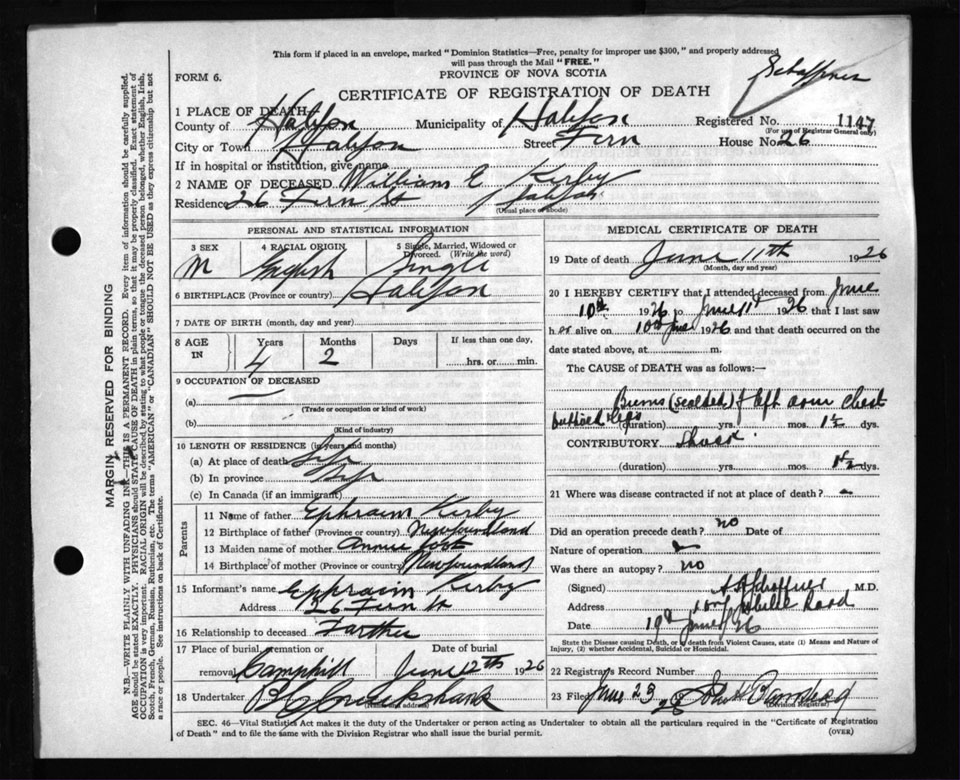 This form if placed in an envelope, marked "Dominion Statistics—Free, penalty for improper use $300," and properly addressed
will pass through the Mail "FREE."
Schaffner
FORM 6.
PROVINCE OF NOVA SCOTIA
CERTIFICATE OF REGISTRATION OF DEATH
1 PLACE OF DEATH
County of Halifax Municipality of Halifax Registered No. 1147
(For use of Registrar General only)
City or Town Halifax Street Fern House No. 26
If in hospital or institution, give name
2 NAME OF DECEASED William E Kirby
Residence 26 Fern St Halifax
(Usual place of abode)
PERSONAL AND STATISTICAL INFORMATION
3 SEX 4 RACIAL ORIGIN 5 Single, Married, Widowed or Divorced. (Write the word)
M English Single
6 BIRTHPLACE (Province or country) Halifax
7 DATE OF BIRTH (month, day and year)
8 AGE IN Years Months Days If less than one day,
4 2 hrs. or min.
9 OCCUPATION OF DECEASED
(a)
(Trade or occupation or kind of work)
(b)
(Kind of industry)
10 LENGTH OF RESIDENCE (in years and months)
(a) At place of death Life
(b) In province Life
(c) In Canada (if an immigrant)
Parents
11 Name of father Ephraim Kirby
12 Birthplace of father (Province or country) Newfoundland
13 Maiden name of mother Annie
14 Birthplace of mother (Province or country) Newfoundland
15 Informant's name Ephraim Kirby
Address 26 Fern St
16 Relationship to deceased Farther
17 Place of burial, cremation or removal Camphill Date of burial June 12th 1926
18 Undertaker
(Name and address)
MEDICAL CERTIFICATE OF DEATH
19 Date of death June 11th 1926
(Month, day and year)
20 I HEREBY CERTIFY that I attended deceased from June
10th 1926 to June 11th 1926 that I last saw
h alive on 10th June 1926 and that death occurred on the
date stated above, at m.
The CAUSE of DEATH was as follows:—
Burns (scalded) of left arm chest
buttock legs
(duration) yrs. mos. 1½ dys.
CONTRIBUTORY Shock.
(duration) yrs. mos. 1½ dys.
21 Where was disease contracted if not at place of death?
Did an operation precede death? no Date of
Nature of operation
Was there an autopsy? no
(Signed) Schaffner M.D.
Address Road
Date June/26
State the Disease causing Death, or in death from Violent Causes, state (1) Means and Nature of
Injury, (2) whether Accidental, Suicidal or Homicidal.
22 Registrar's Record Number
23 Filed June 23 26
(Division Registrar)
SEC. 46—Vital Statistics Act makes it the duty of the Undertaker or person acting as Undertaker to obtain all the particulars required in the "Certificate of Registration
of Death" and to file the same with the Division Registrar who shall issue the burial permit.
(OVER)
MARGIN RESERVED FOR BINDING
N.B.—WRITE PLAINLY WITH UNFADING INK—THIS IS A PERMANENT RECORD. Every item of information should be carefully supplied.
AGE should be stated EXACTLY. PHYSICIANS should STATE CAUSE OF DEATH in plain terms, so that it may be properly classified. Exact statement of
OCCUPATION is very important. RACIAL ORIGIN will be described by stating to what people or tongue the deceased person belonged, whether English, Irish,
Scotch, French, German, Russian, Ruthenian, etc. The terms "AMERICAN" or "CANADIAN" SHOULD NOT BE USED as they express citizenship but not
a race or people. See instructions on back of Certificate.